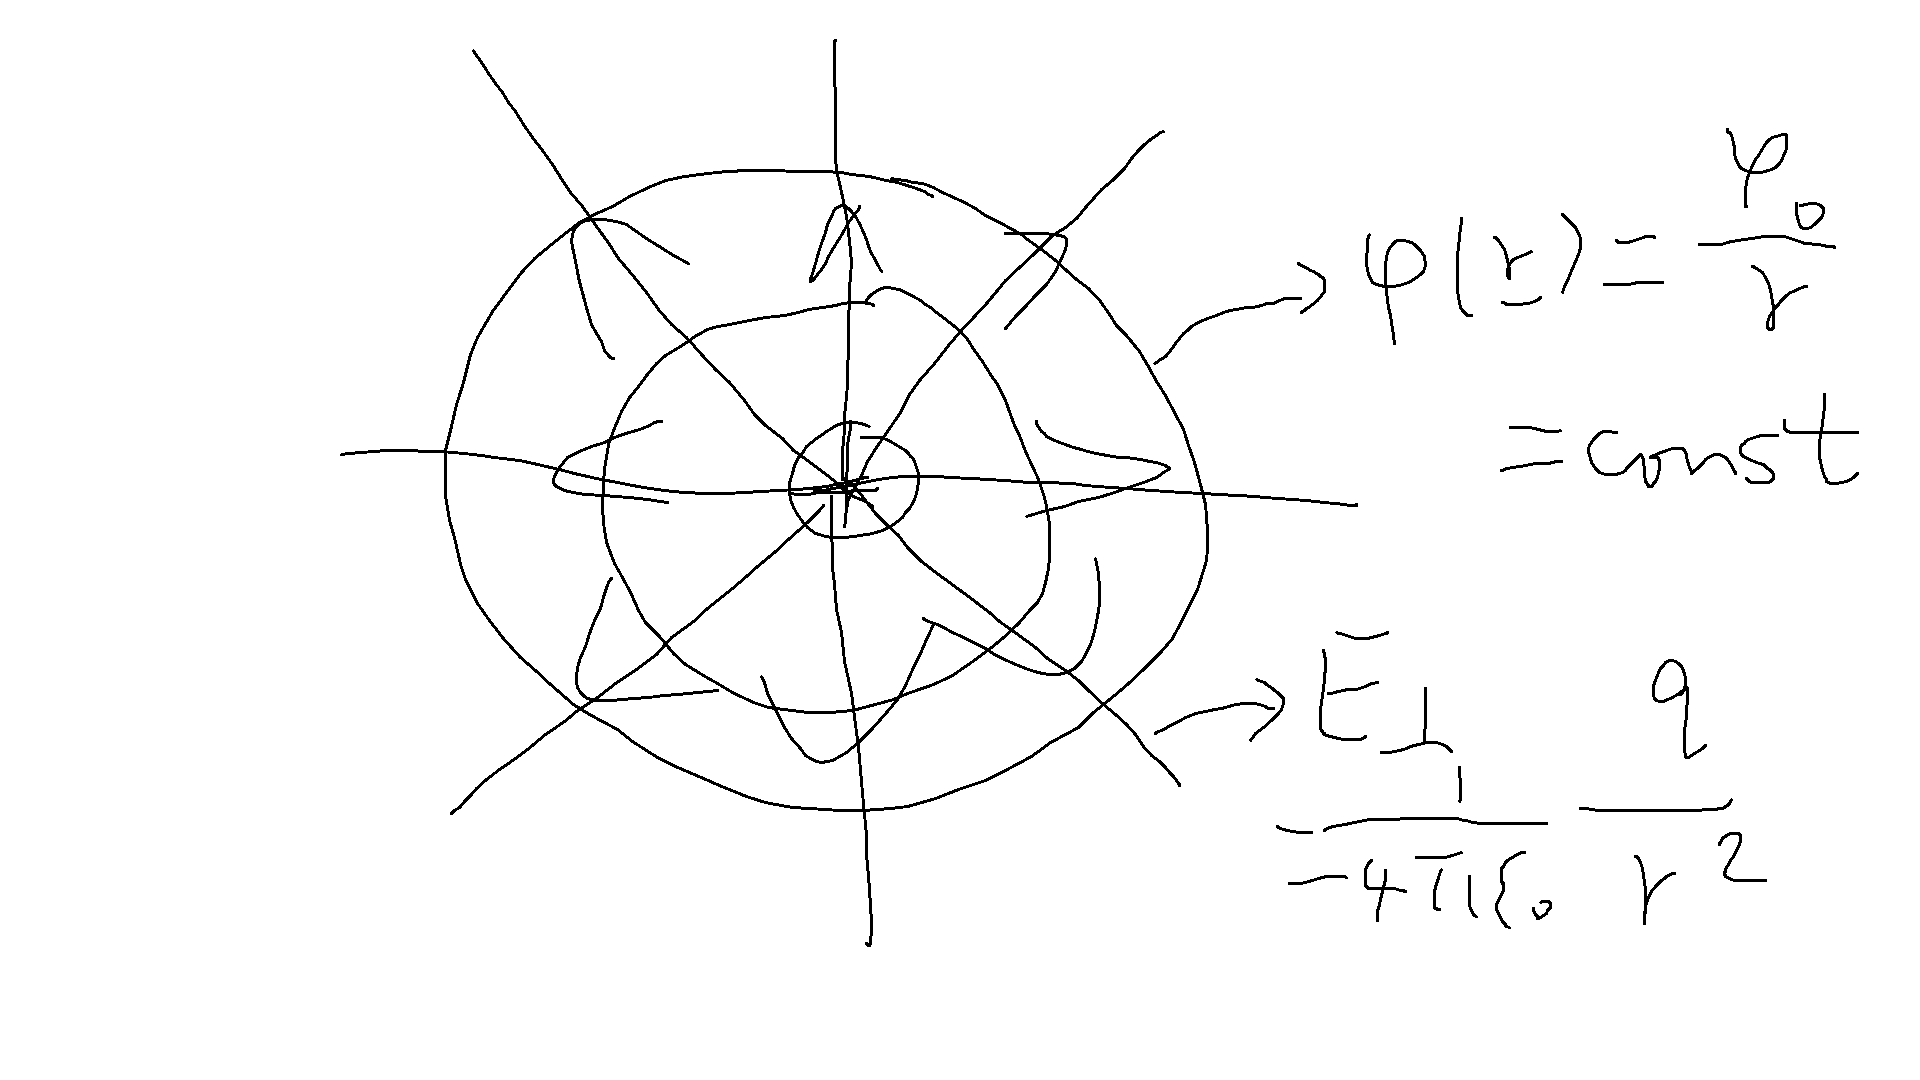 φ(r) = φ₀/r
= const
E⊥
= 1/4πε₀ q/r²